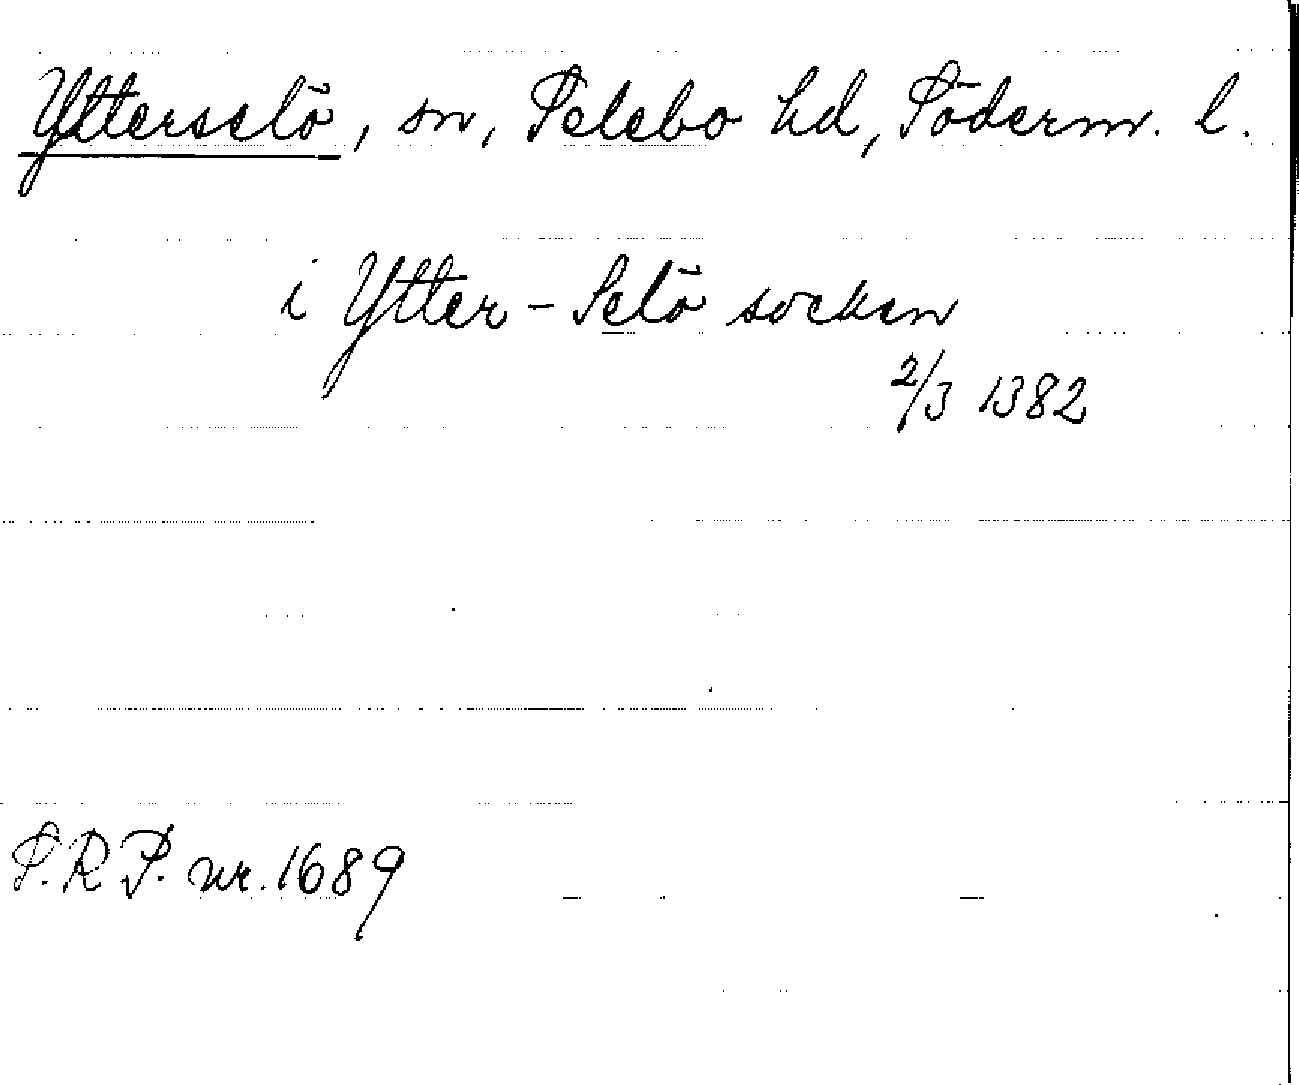 Ytterselö, sn, Selebo hd, Söderm. l.
i Ytter-Selö socken
2/3 1382
S.R.P. nr. 1689